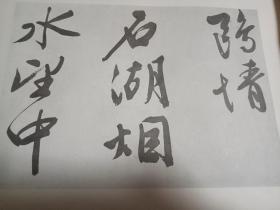 隐情
石湖烟
水望中